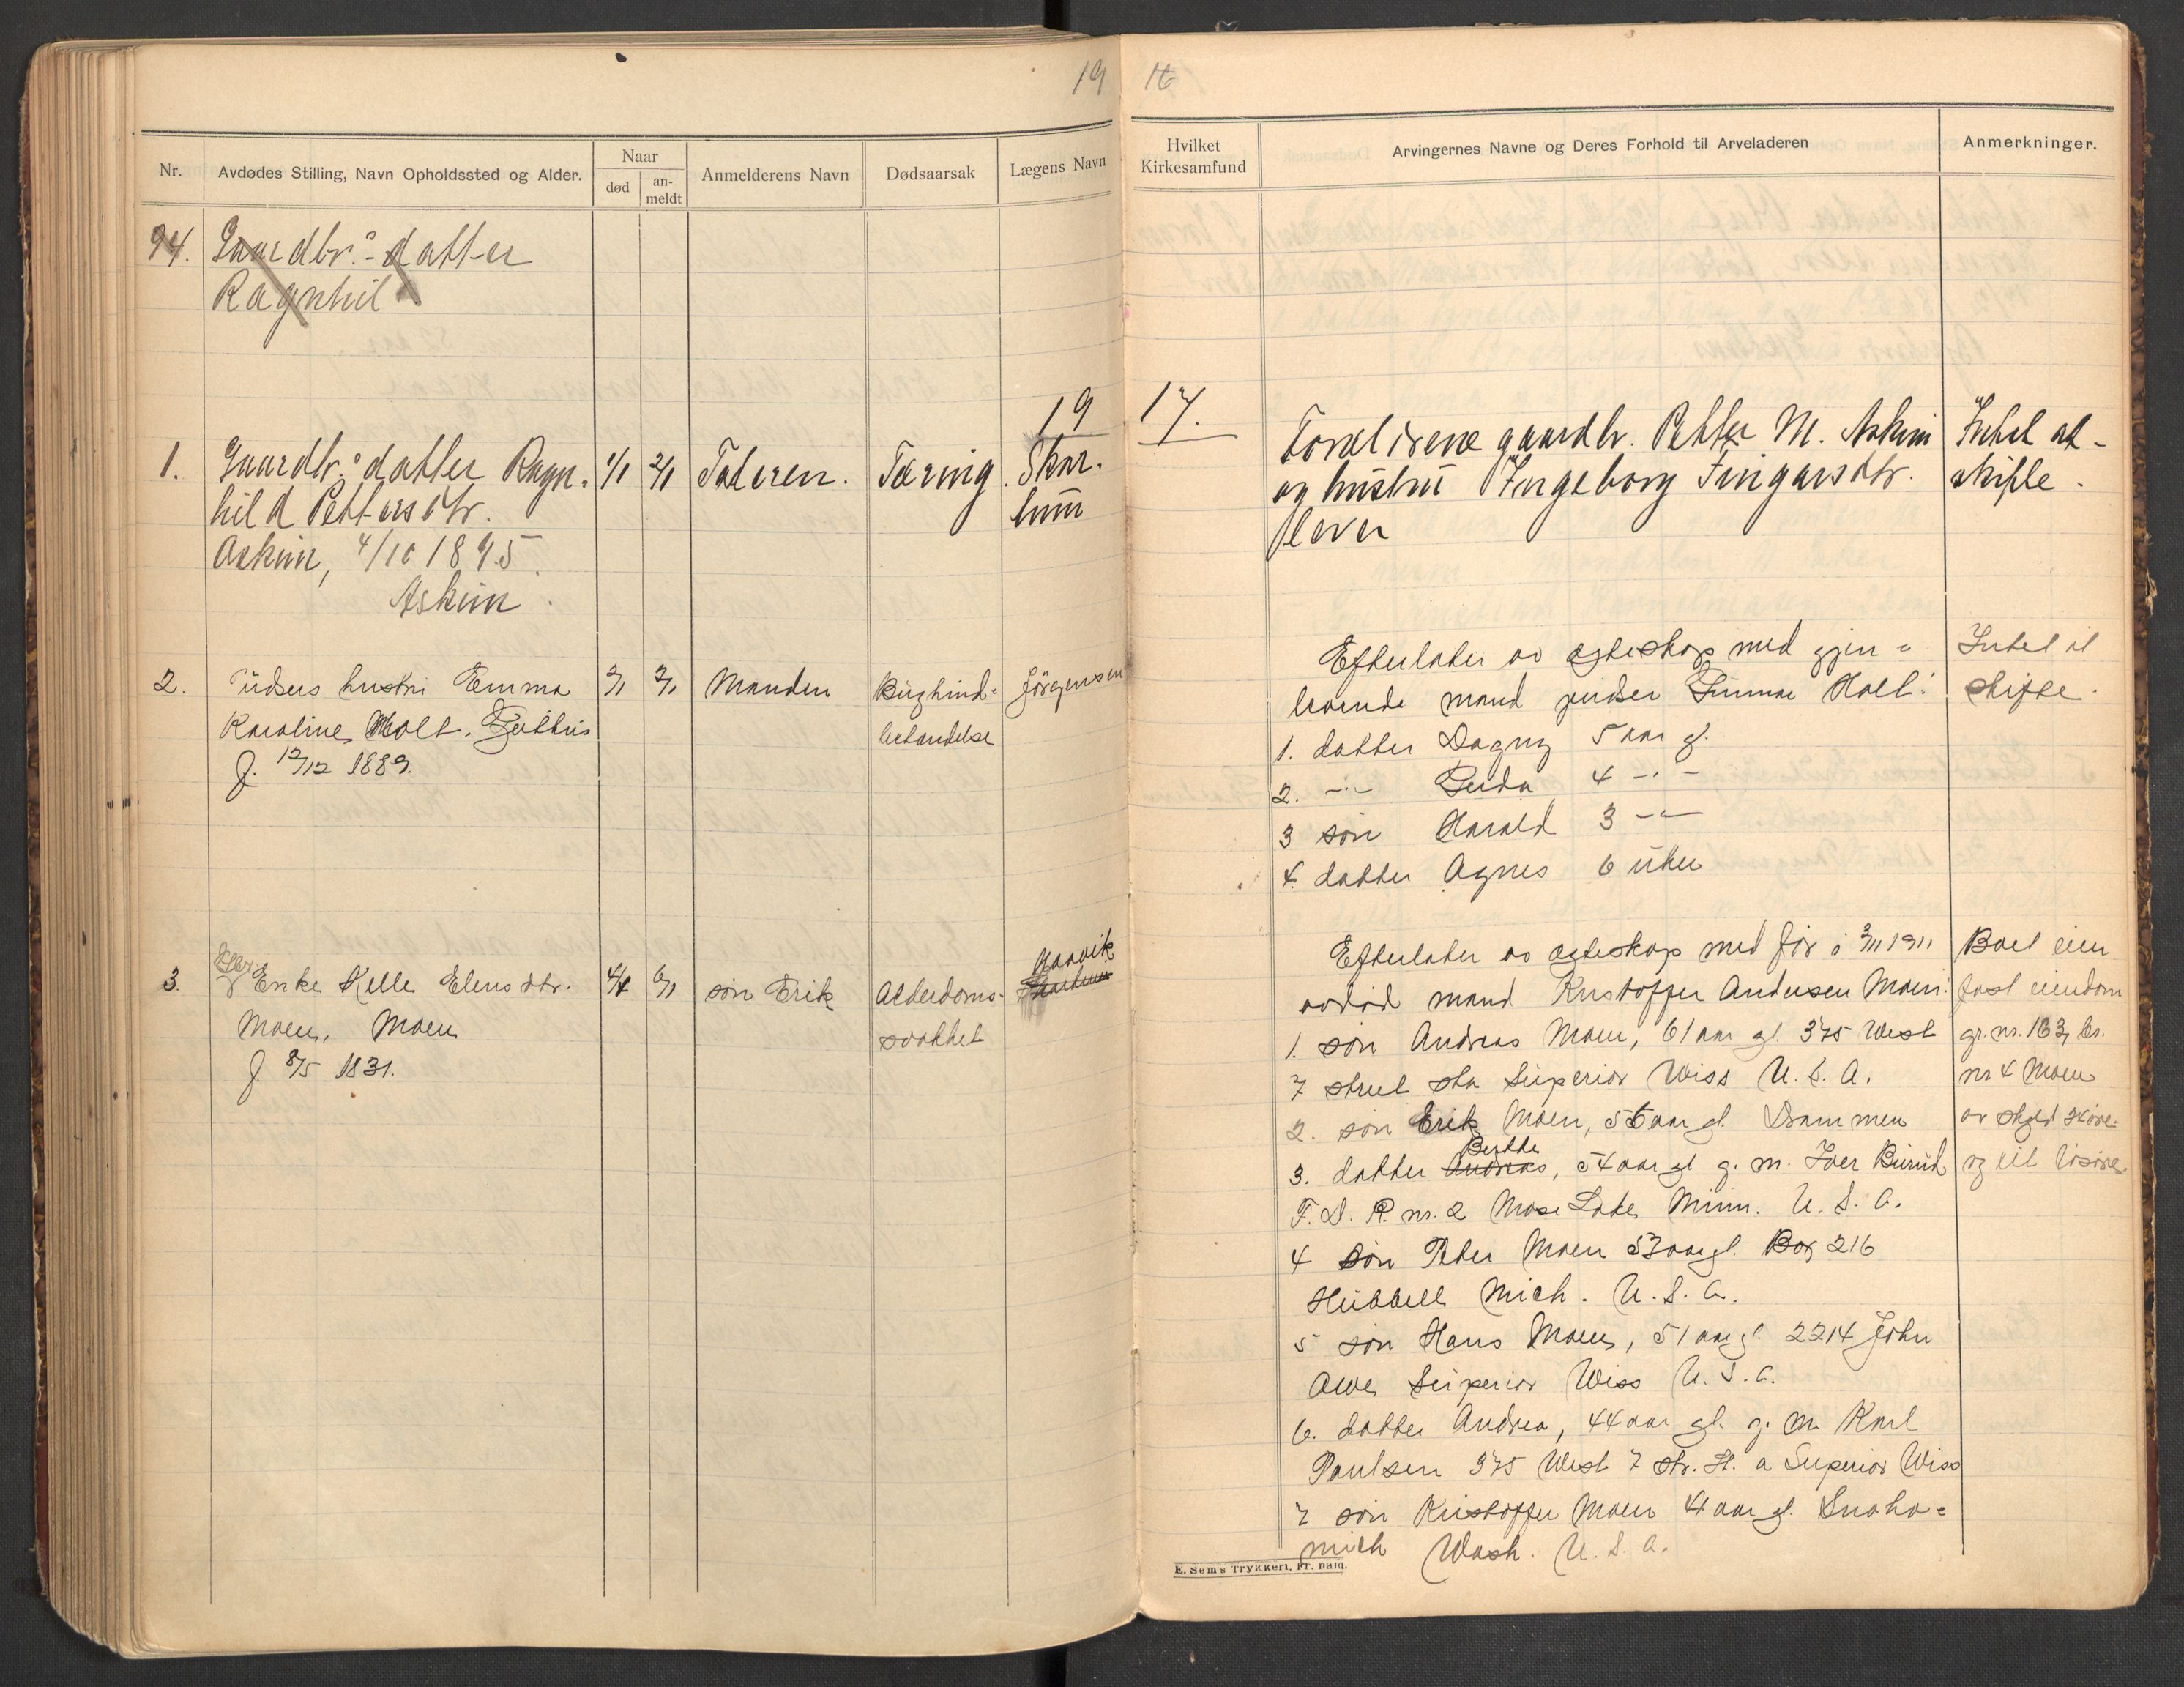 19 16
Nr.
Avdødes Stilling, Navn Opholdssted og Alder.
Naar
død
an-
meldt
Anmelderens Navn
Dødsaarsak
Lægens Navn
94. Gaardbr.s-datter
Ragnhil
19
1. Gaardbr.s datter Ragn- 1/1 2/1 Faderen. Tæring. Skar-
hild Pettersdtr.
Askim, 4/10 1895.
Askim.
2. hustru Emma 2/1 Manden Bughind- Jörgensen
Karoline Holt. betændelse
f. 12/12 1889.
3. Enke Kelle Elensdtr. 6/1 sön Erik Alderdoms- Haavik
Moen, Moen svakhet
f. 8/5 1831.
Hvilket
Kirkesamfund
Arvingernes Navne og Deres Forhold til Arveladeren
Anmerkninger.
17.
Forældrene gaardbr. Petter M. Askim Intet at
og hustru Ingeborg Fingarsdtr. skifte.
lever
Efterlater av egteskap med gjen- Intet at
levende mand Holt: skifte.
1. datter Dagny 5 aar gl.
2. -"- 4 -"-
3 sön Harald 3 -"-
4. datter Agnes 6 uker
Efterlater av egteskap med för i 3/11 1911 Boet eier
avdöd mand Kristoffer Andersen Moen: fast eiendom
1. sön Andreas Moen, 61 aar gl. 375 West gr. nr. 163, br.
7 street sta Superior Wiss U.S.A. nr 4 Moen
2. sön Erik Moen, 56 aar gl. Drammen av skyld
Berthe
3. datter Andreas, 54 aar gl g. m. Iver Burud og litt lösöre.
F.D.R. nr. 2 Mose Lake Minn. U.S.A.
4 sön Peter Moen 53 aar gl. Box 216
Hubbell Mich. U.S.A.
5 sön Hans Moen, 51 aar gl. 2214 John
Awe Superior Wiss U.S.A.
6. datter Andrea, 44 aar gl. g. m. Karl
Paulsen 375 West 7 str. st. a Superior Wiss
7 sön Kristoffer Moen 41 aar gl. Snoho-
mich Wash. U.S.A.
E. Sem's Trykkeri, Fr. hald.